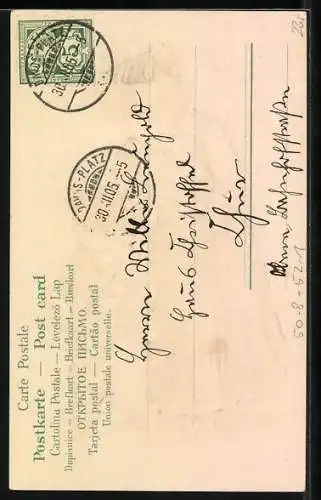 Carte Postale
Postkarte — Post card
Cartolina Postale — Levelező Lap
Dopisnice — Brefkort — Brefkaart — Brevkort
ОТКРЫТОЕ ПИСЬМО.
Tarjeta postal — Cartão postal
Union postale universelle.
DAVOS-PLATZ
30.XII.05.
5
DAVOS-PLATZ
30.XII.05. -5
Herrn Willi
Haus
Chur
50.8-52.1